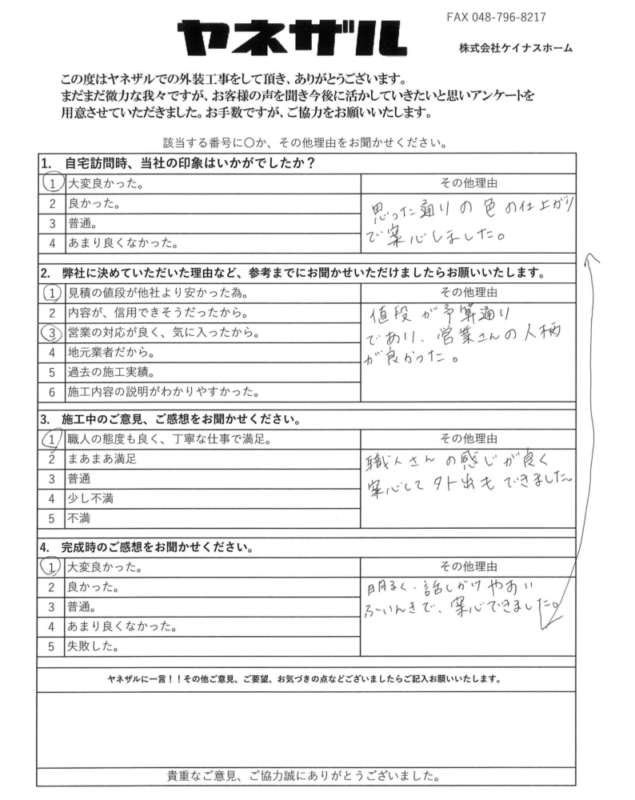 FAX 048-796-8217
ヤネザル
株式会社ケイナスホーム
この度はヤネザルでの外装工事をして頂き、ありがとうございます。
まだまだ微力な我々ですが、お客様の声を聞き今後に活かしていきたいと思いアンケートを
用意させていただきました。お手数ですが、ご協力をお願いいたします。
該当する番号に〇か、その他理由をお聞かせください。
1. 自宅訪問時、当社の印象はいかがでしたか？
1 大変良かった。
2 良かった。
3 普通。
4 あまり良くなかった。
その他理由
思った通りの色の仕上がり
で安心しました。
2. 弊社に決めていただいた理由など、参考までにお聞かせいただけましたらお願いいたします。
1 見積の値段が他社より安かった為。
2 内容が、信用できそうだったから。
3 営業の対応が良く、気に入ったから。
4 地元業者だから。
5 過去の施工実績。
6 施工内容の説明がわかりやすかった。
その他理由
値段が予算通り
であり、営業さんの人柄
が良かった。
3. 施工中のご意見、ご感想をお聞かせください。
1 職人の態度も良く、丁寧な仕事で満足。
2 まあまあ満足
3 普通
4 少し不満
5 不満
その他理由
職人さんの感じが良く
安心して外出もできました。
4. 完成時のご感想をお聞かせください。
1 大変良かった。
2 良かった。
3 普通。
4 あまり良くなかった。
5 失敗した。
その他理由
明るく、話しかけやすい
ふいんきで、安心できました。
ヤネザルに一言！！その他ご意見、ご要望、お気づきの点などございましたらご記入お願いいたします。
貴重なご意見、ご協力誠にありがとうございました。